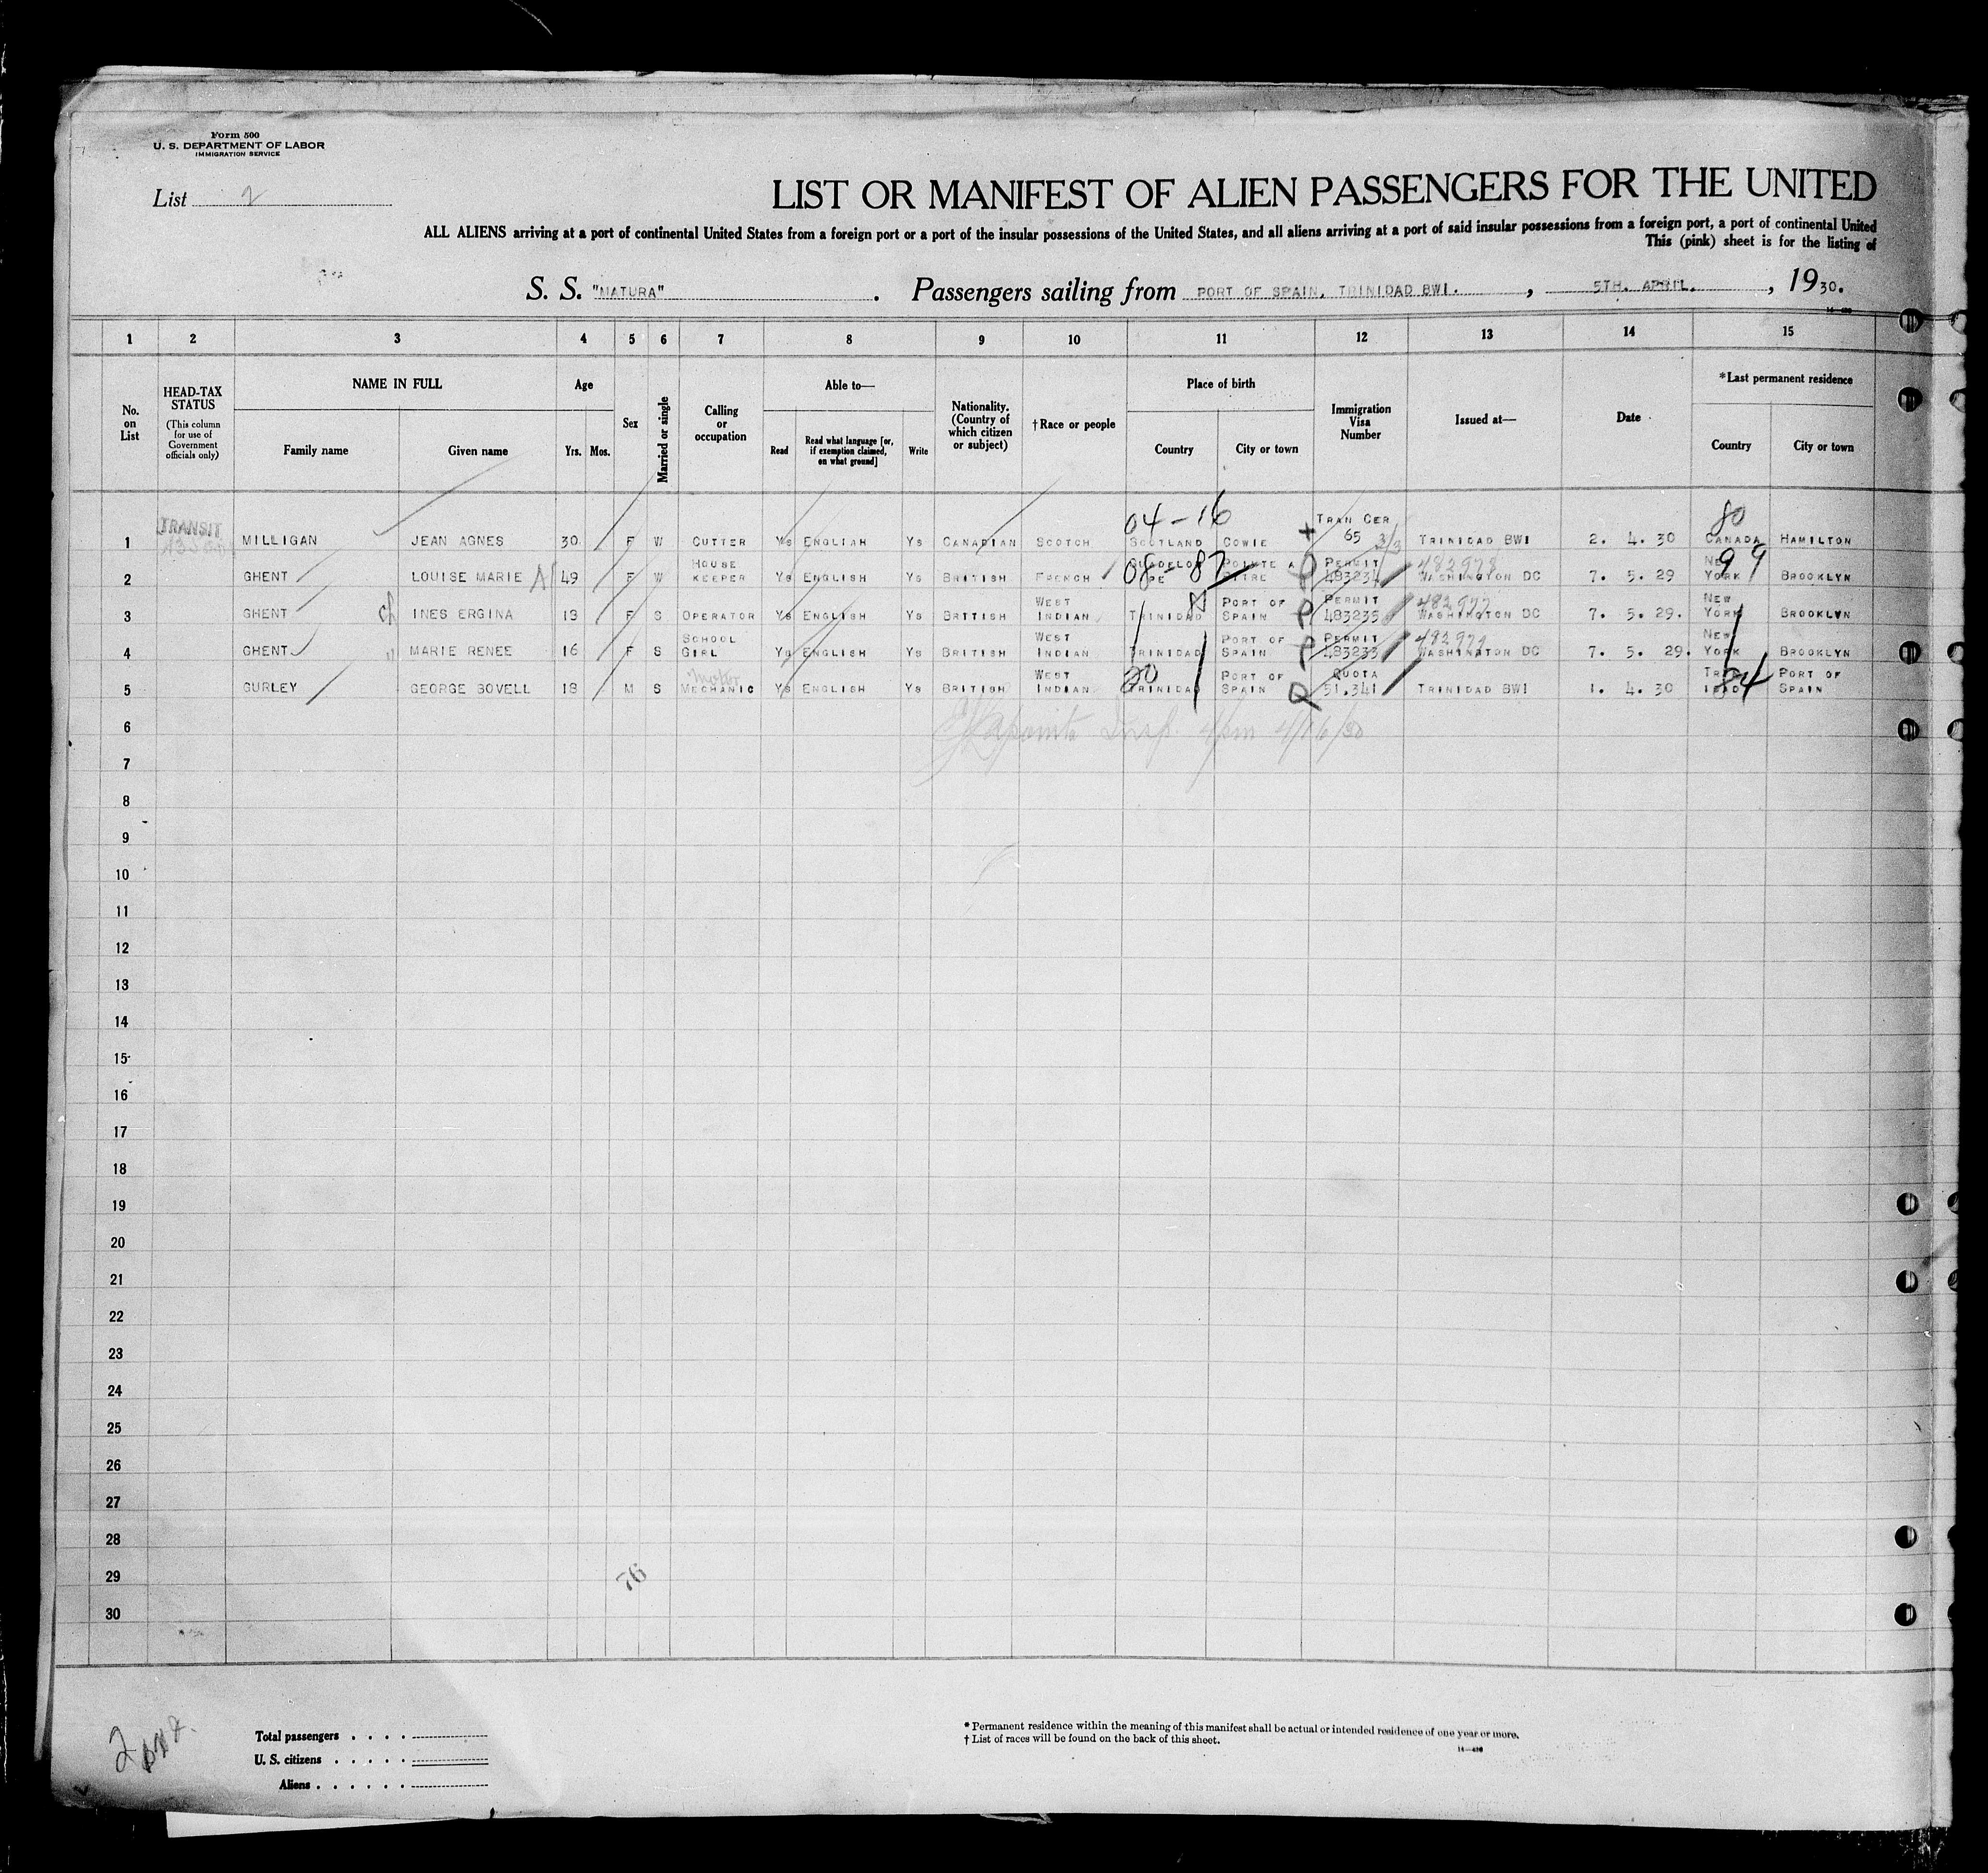 Form 500
U. S. DEPARTMENT OF LABOR
IMMIGRATION SERVICE
List 2
LIST OR MANIFEST OF ALIEN PASSENGERS FOR THE UNITED
ALL ALIENS arriving at a port of continental United States from a foreign port or a port of the insular possessions of the United States, and all aliens arriving at a port of said insular possessions from a foreign port, a port of continental United
This (pink) sheet is for the listing of
S. S. "MATURA". Passengers sailing from PORT OF SPAIN, TRINIDAD BWI., 5TH. APRIL., 1930.
1 2 3 4 5 6 7 8 9 10 11 12 13 14 15
No. on List
HEAD-TAX STATUS (This column for use of Government officials only)
NAME IN FULL
Family name
Given name
Age
Yrs. Mos.
Sex
Married or single
Calling or occupation
Able to—
Read
Read what language [or, if exemption claimed, on what ground]
Write
Nationality. (Country of which citizen or subject)
†Race or people
Place of birth
Country
City or town
Immigration Visa Number
Issued at—
Date
*Last permanent residence
Country
City or town
04-16 80
1 TRANSIT MILLIGAN JEAN AGNES 30 F W CUTTER Ys ENGLIAH Ys CANADIAN SCOTCH SCOTLAND COWIE TRAN CER 65 3/3 TRINIDAD BWI 2. 4. 30 CANADA HAMILTON
08-87 482978 99
2 GHENT LOUISE MARIE 49 F W HOUSE KEEPER Ys ENGLISH Ys BRITISH FRENCH GUADELOUPE POINTE A PITRE PERMIT 483234 WASHINGTON DC 7. 5. 29 NEW YORK BROOKLYN
482977
3 GHENT INES ERGINA 18 F S OPERATOR Ys ENGLISH Ys BRITISH WEST INDIAN TRINIDAD PORT OF SPAIN P PERMIT 483235 WASHINGTON DC 7. 5. 29. NEW YORK BROOKLYN
482979
4 GHENT MARIE RENEE 16 F S SCHOOL GIRL Ys ENGLISH Ys BRITISH WEST INDIAN TRINIDAD PORT OF SPAIN P PERMIT 483233 WASHINGTON DC 7. 5. 29. NEW YORK BROOKLYN
20 Motor 24
5 GURLEY GEORGE BOVELL 18 M S MECHANIC Ys ENGLISH Ys BRITISH WEST INDIAN TRINIDAD PORT OF SPAIN Q QUOTA 51.341 TRINIDAD BWI 1. 4. 30 TRINIDAD PORT OF SPAIN
6
Insp. 4/16/30
7
8
9
10
11
12
13
14
15
16
17
18
19
20
21
22
23
24
25
26
27
28
29
30
76
Total passengers
U. S. citizens
Aliens
* Permanent residence within the meaning of this manifest shall be actual or intended residence of one year or more.
† List of races will be found on the back of this sheet.